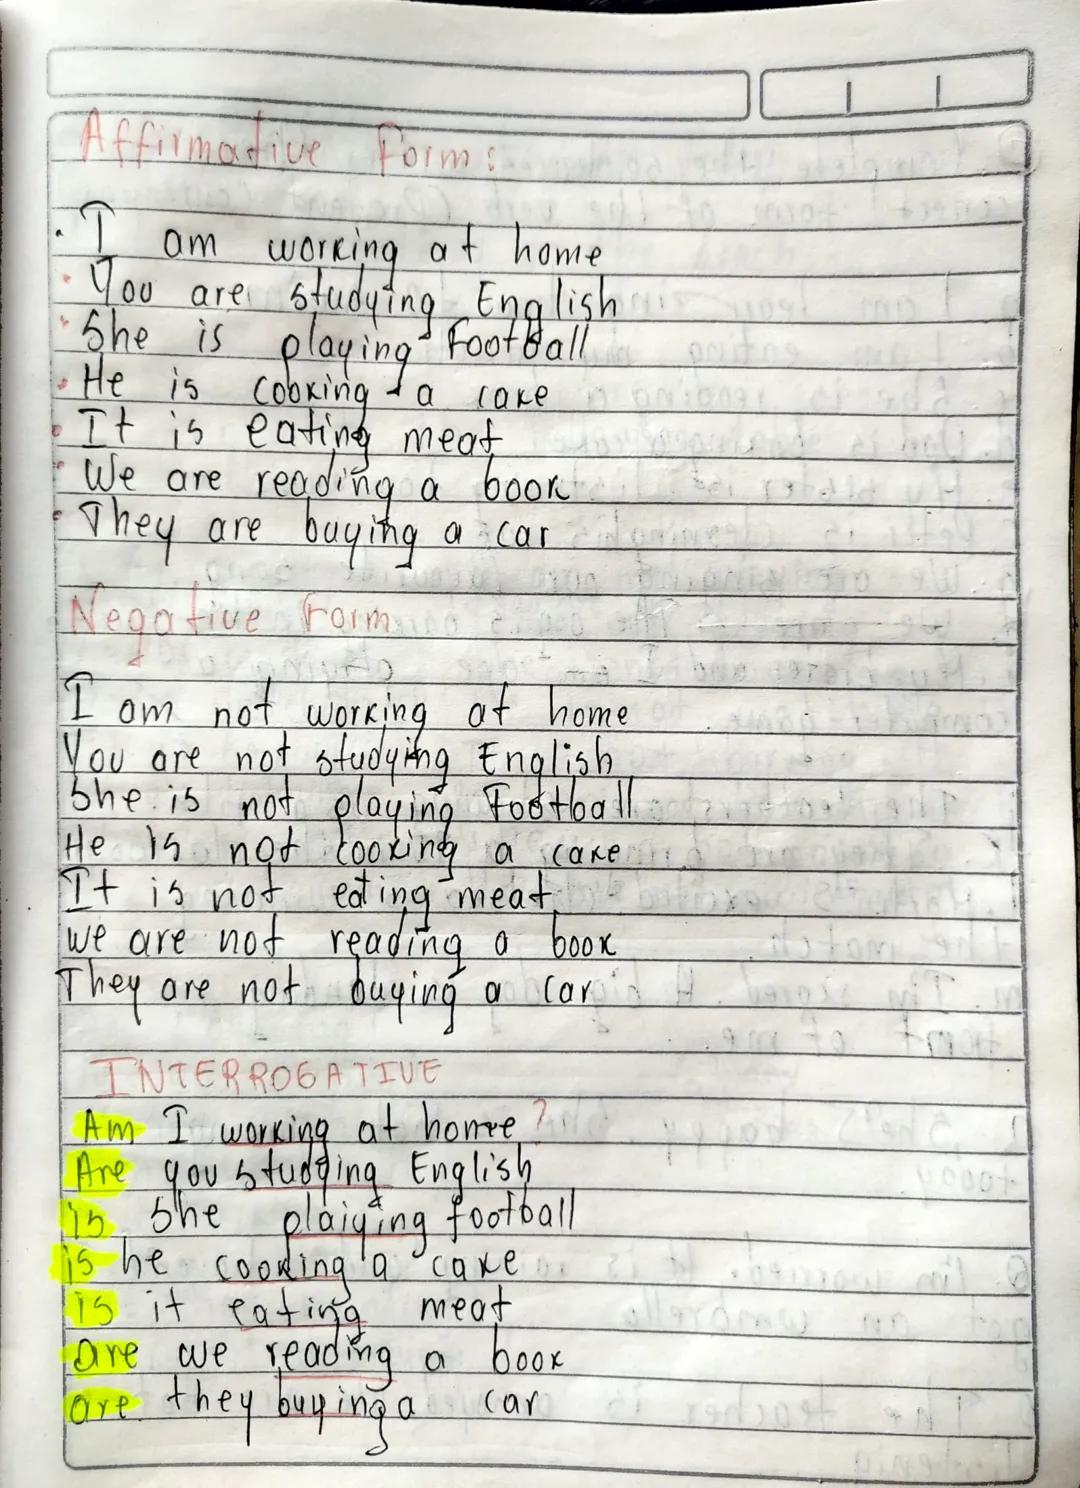 Affirmative Form:
• I am working at home
• You are studying English
• She is playing FootBall
• He is cooking a cake
• It is eating meat
• We are reading a book
• They are buying a car
Negative Form
I am not working at home
You are not studying English
She is not playing Football
He is not cooking a cake
It is not eating meat
we are not reading a book
They are not buying a car
INTERROGATIVE
Am I working at home?
Are you studying English
is She plaiying football
is he cooking a cake
is it eating meat
are we reading a book
are they buying a car